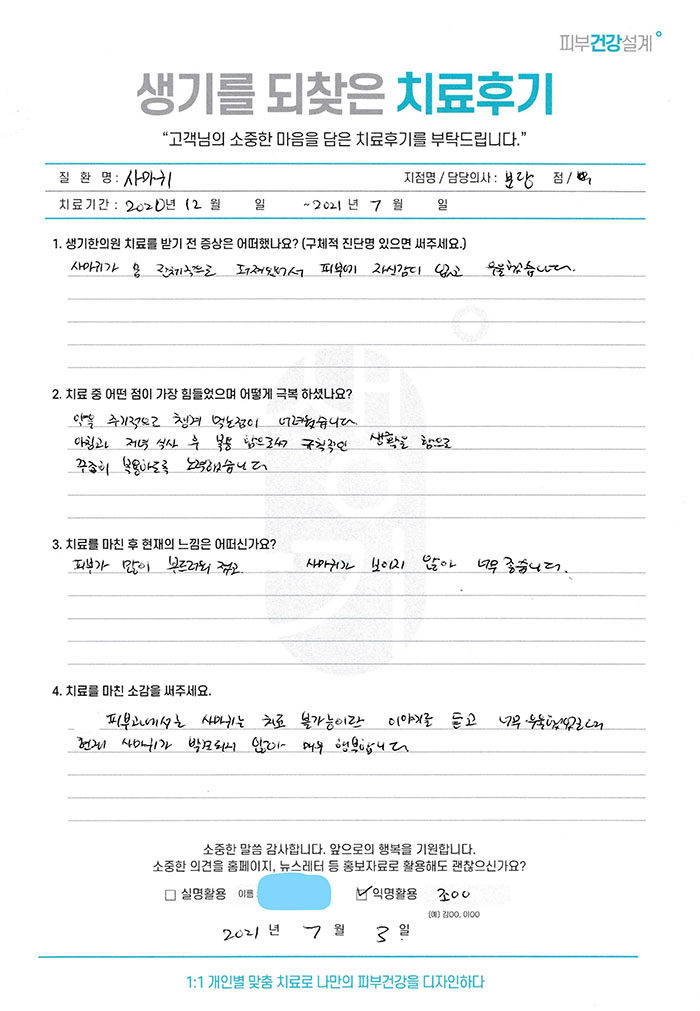 피부건강설계
생기를 되찾은 치료후기
“고객님의 소중한 마음을 담은 치료후기를 부탁드립니다.”
질 환 명 : 사마귀 지점명 / 담당의사 : 분당 점 /
치료기간 : 2020년 12 월 일 ~2021 년 7 월 일
1. 생기한의원 치료를 받기 전 증상은 어떠했나요? (구체적 진단명 있으면 써주세요.)
사마귀가 몸 전체적으로 퍼져있어서 피부에 자신감이 없고 우울했습니다.
2. 치료 중 어떤 점이 가장 힘들었으며 어떻게 극복 하셨나요?
약을 주기적으로 챙겨 먹는점이 어려웠습니다
아침과 저녁 식사 후 복용 함으로써 규칙적인 생활을 함으로
꾸준히 복용하도록 노력했습니다
3. 치료를 마친 후 현재의 느낌은 어떠신가요?
피부가 많이 부드러워 졌고 사마귀가 보이지 않아 너무 좋습니다.
4. 치료를 마친 소감을 써주세요.
피부과에서는 사마귀는 치료 불가능이란 이야기를 듣고 너무 우울했었는데
현재 사마귀가 발견되지 않아 매우 행복합니다
소중한 말씀 감사합니다. 앞으로의 행복을 기원합니다.
소중한 의견을 홈페이지, 뉴스레터 등 홍보자료로 활용해도 괜찮으신가요?
실명활용 이름 : 익명활용 조OO
(예) 김OO, 이OO
2021 년 7 월 3 일
1:1 개인별 맞춤 치료로 나만의 피부건강을 디자인하다